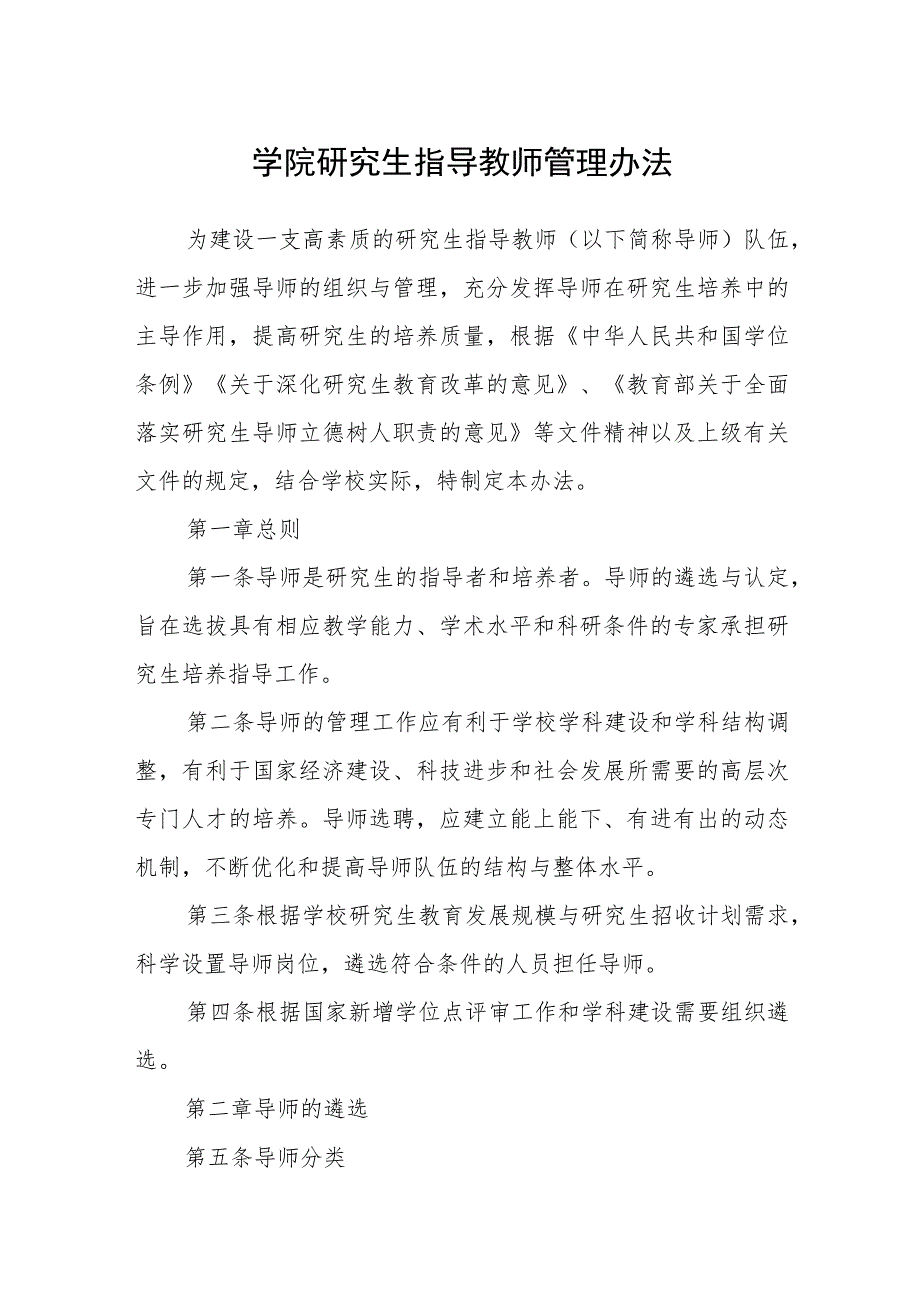 学院研究生指导教师管理办法
为建设一支高素质的研究生指导教师（以下简称导师）队伍，
进一步加强导师的组织与管理，充分发挥导师在研究生培养中的
主导作用，提高研究生的培养质量，根据《中华人民共和国学位
条例》《关于深化研究生教育改革的意见》、《教育部关于全面
落实研究生导师立德树人职责的意见》等文件精神以及上级有关
文件的规定，结合学校实际，特制定本办法。
第一章总则
第一条导师是研究生的指导者和培养者。导师的遴选与认定，
旨在选拔具有相应教学能力、学术水平和科研条件的专家承担研
究生培养指导工作。
第二条导师的管理工作应有利于学校学科建设和学科结构调
整，有利于国家经济建设、科技进步和社会发展所需要的高层次
专门人才的培养。导师选聘，应建立能上能下、有进有出的动态
机制，不断优化和提高导师队伍的结构与整体水平。
第三条根据学校研究生教育发展规模与研究生招收计划需求，
科学设置导师岗位，遴选符合条件的人员担任导师。
第四条根据国家新增学位点评审工作和学科建设需要组织遴
选。
第二章导师的遴选
第五条导师分类